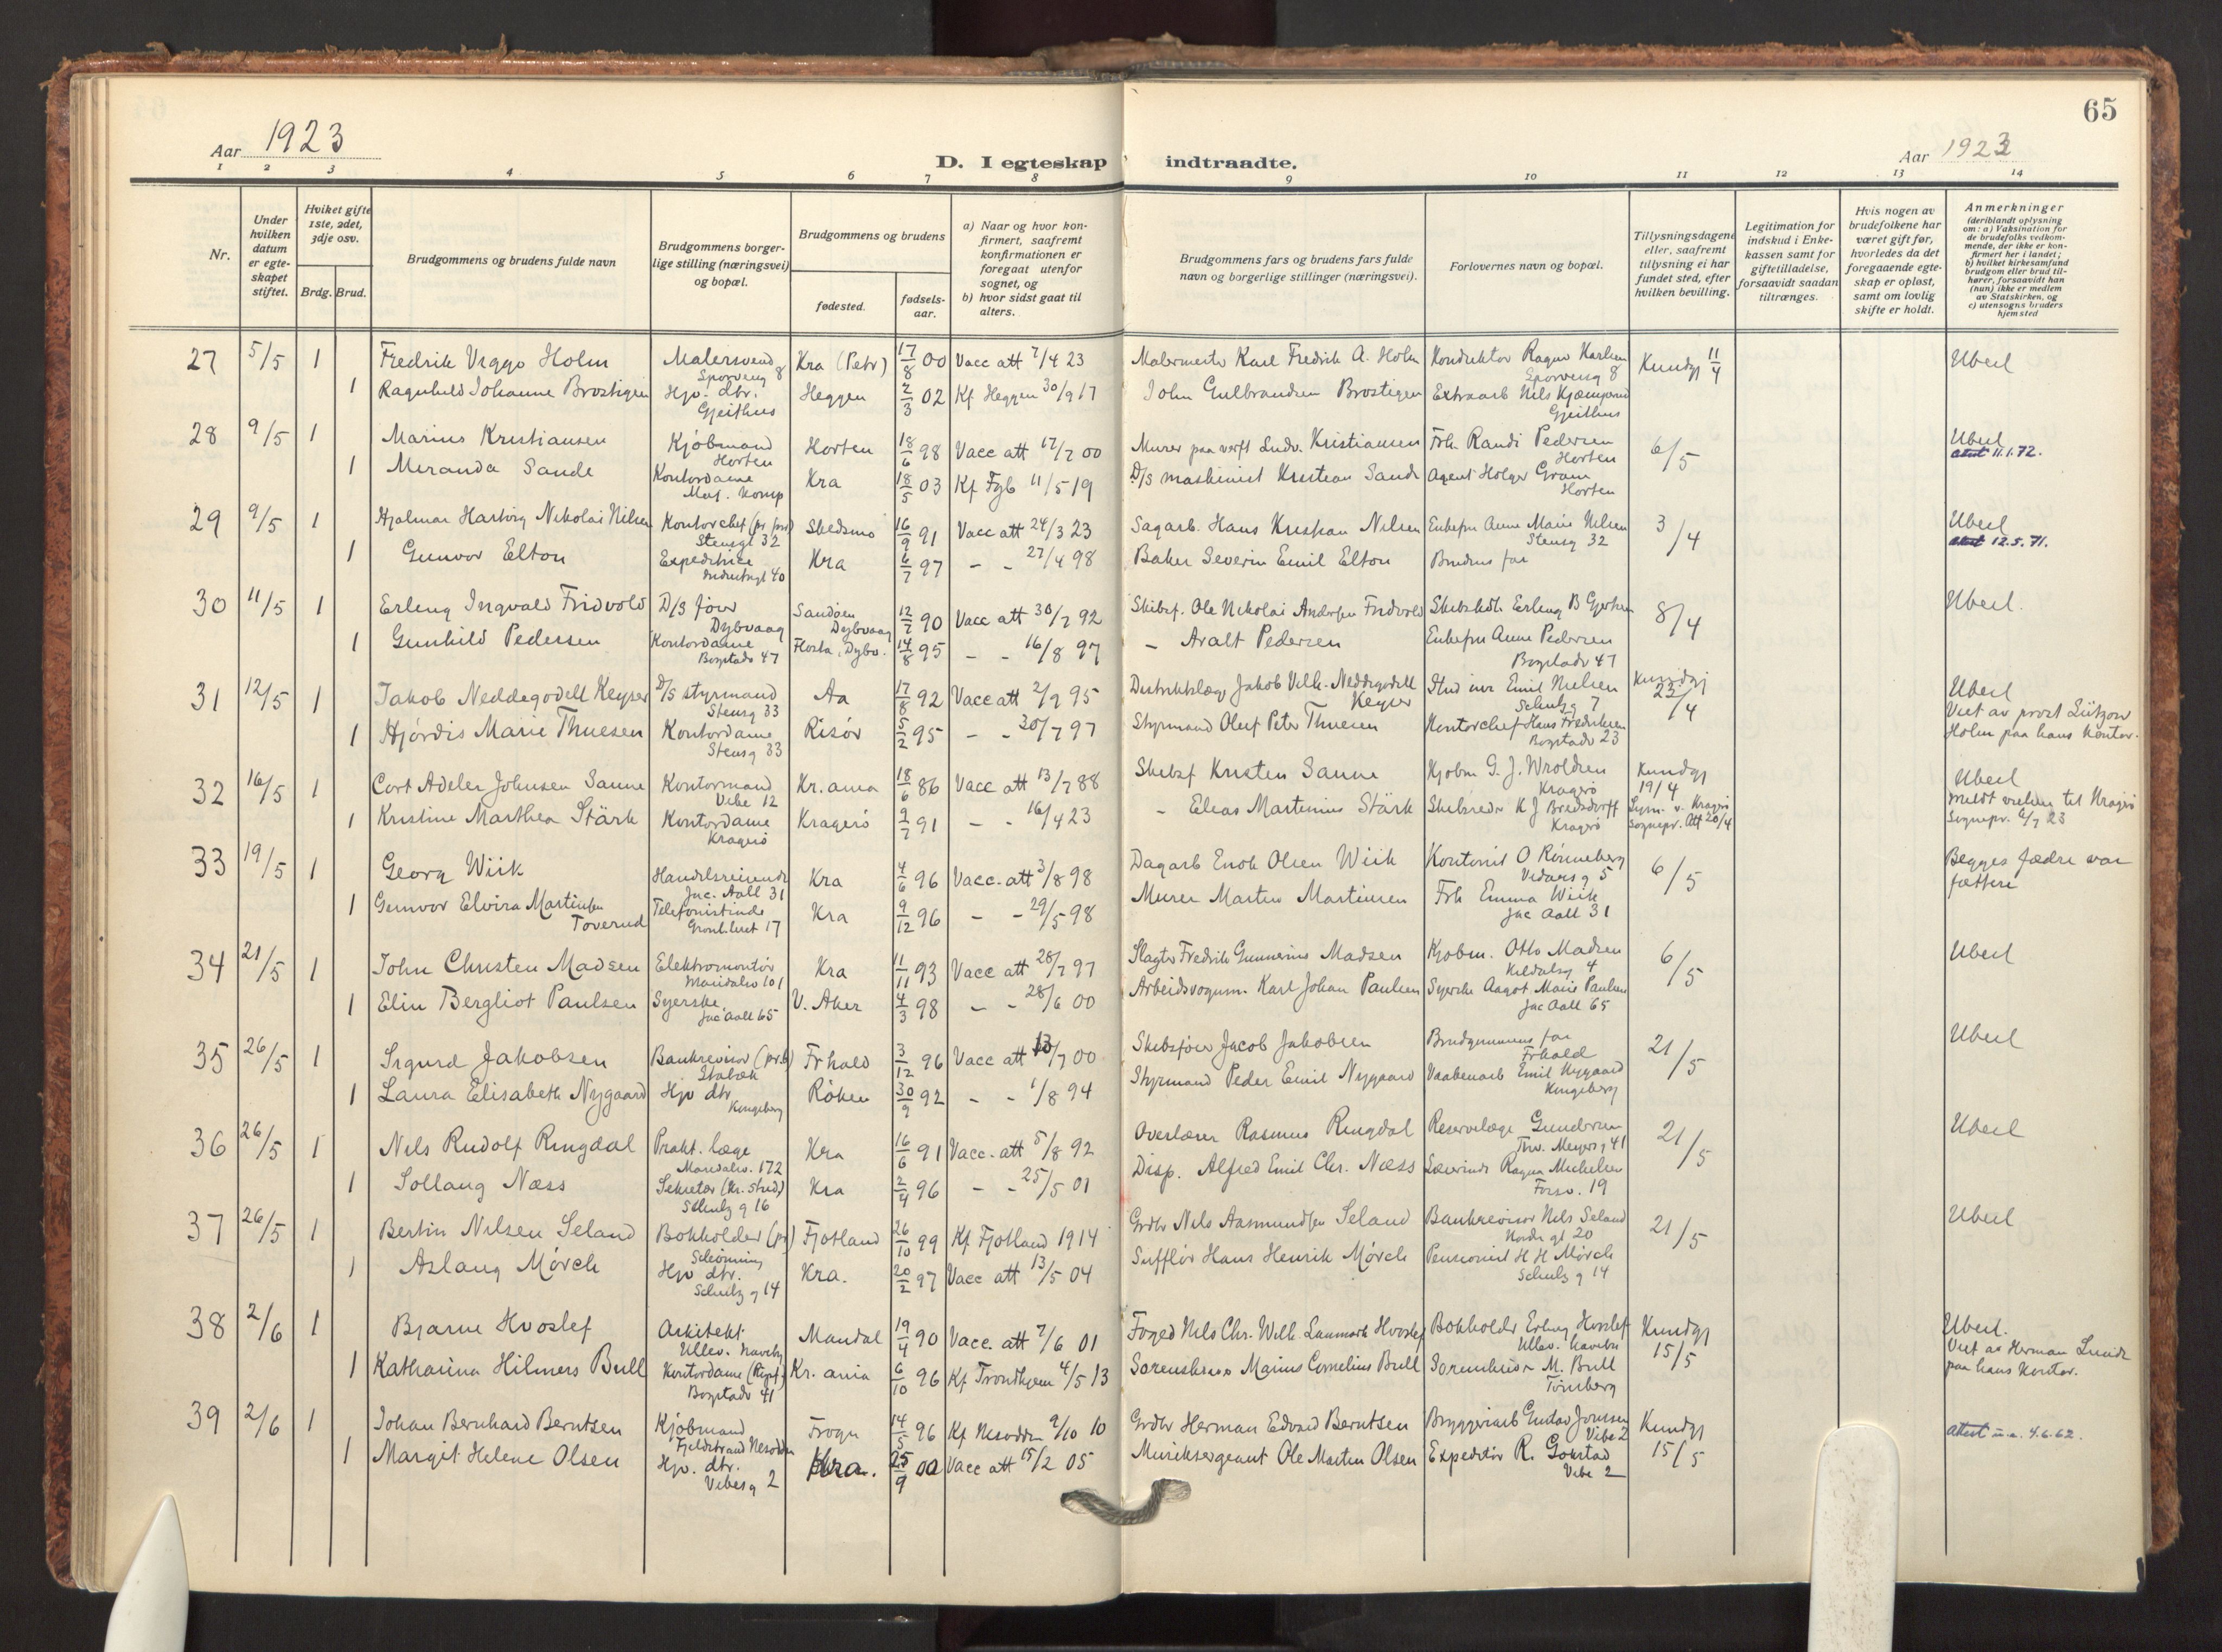 65
Aar 1923
D. I egteskap indtraadte.
Aar 1923
1 2 3 4 5 6 7 8 9 10 11 12 13 14
Nr.
Under hvilken datum er egte-skapet stiftet.
Hviket gifte 1ste, 2det, 3dje osv.
Brdg. Brud.
Brudgommens og brudens fulde navn
Brudgommens borger-lige stilling (næringsvei) og bopæl.
Brudgommens og brudens
fødested.
fødsels-aar.
a) Naar og hvor kon-firmert, saafremt konfirmationen er foregaat utenfor sognet, og
b) hvor sidst gaat til alters.
Brudgommens fars og brudens fars fulde navn og borgerlige stillinger (næringsvei).
Forlovernes navn og bopæl.
Tillysningsdagene eller, saafremt tillysning ei har fundet sted, efter hvilken bevilling.
Legitimation for indskud i Enke-kassen samt for giftetilladelse, forsaavidt saadan tiltrænges.
Hvis nogen av brudefolkene har været gift før, hvorledes da det foregaaende egte-skap er opløst, samt om lovlig skifte er holdt.
Anmerkninger (deriblandt oplysning om: a) Vaksination for de brudefolks vedkom-mende, der ikke er kon-firmert her i landet; b) hvilket kirkesamfund brudgom eller brud til-hører, forsaavidt han (hun) ikke er medlem av Statskirken, og c) utensogns bruders hjemsted
27 5/5 1 Fredrik Viggo Holm Malersvend Sporveisg 8 Kra (Petr) 17/8 00 Vacc att 7/4 23 Malermester Karl Fredrik A. Holm Konduktør Ragnv Karlsen Sporveisg 8 Kundgj 11/4 Uberl
1 Ragnhild Johanne Brostigen Hjv. dtr. Gjeithus Heggen 2/3 02 Kf Heggen 30/9 17 John Gulbrandsen Brostigen Extraarb Nils Gjeithus
28 9/5 1 Marius Kristiansen Kjøbmand Horten Horten 18/6 98 Vacc att 17/7 00 Murer paa verft Ludv. Kristiansen Frk. Randi Pedersen Horten 6/5 Uberl attest 11.1.72.
1 Miranda Sande Kontordame Maj. komp Kra 18/5 03 Kf Fgb 11/5 19 D/S maskinist Kristian Sande Agent Holger Gram Horten
29 9/5 1 Hjalmar Hartvig Nikolai Nilsen Kontorchef (pr prv) Stensgt 32 Skedsmo 16/9 91 Vacc att 24/3 23 Sagarb. Hans Kristian Nilsen Enkefru Anne Marie Nilsen Stensg 32 3/4 Uberl attest 12.5.71.
1 Gunvor Elton Expeditrice Industrigt 40 Kra 6/7 97 - - 27/4 98 Baker Severin Emil Elton Brudens far
30 11/5 1 Erling Ingvald Fridvold D/S fører Dybvaag Sandøen Dybvaag 12/7 90 Vacc att 30/7 92 Skibsf. Ole Nikolai Andersen Fridvold Erling B Gjertsen 8/4 Uberl.
1 Gunhild Pedersen Kontordame Bogstadv 47 Flosta, Dybv. 14/8 95 - - 16/8 97 - Avalt Pedersen Enkefru Anne Pedersen Bogstadv 47
31 12/5 1 Jakob Neddegodell Keyser D/S styrmand Stensg 33 Aa 17/8 92 Vacc att 2/7 95 Distriktslæge Jakob Vilh. Neddegodell Keyser Emil Nielsen Schultzg 7 Kundgj 22/4 Uberl Viet av prost Lützow Holm paa hans kontor.
1 Hjørdis Marie Thuesen Kontordame Stensg 33 Risør 5/2 95 - - 20/7 97 Styrmand Oluf Peter Thuesen Kontorchef Hans Fredriksen Bogstadv 23
32 16/5 1 Cort Adeler Johnsen Sanne Kontormand Vibe 12 Kr.ania 18/6 86 Vacc att 13/7 88 Skibsf Kristen Sanne Kjøbm G. J. Wroldsen Kragerø Kundgj 19/4 Uberl meldt vielsen til Kragerø Sognepr. 6/7 23
1 Kristine Marthea Stärk Kontordame Kragerø Kragerø 9/7 91 - - 16/4 23 - Elias Martinius Stärk Skibsreder K J Bredsdorff Kragerø Lysn. v. Kragerø Sognepr. Att 20/4
33 19/5 1 Georg Wiik Handelsreisende Jac. Aall 31 Kra 4/6 96 Vacc. att 3/8 98 Dagarb Enok Olsen Wiik Kontorist O Rønneberg Vidarsg 5 6/5 Begges fædre var fættere
1 Gunvor Elvira Martinsen Toverud Telefonistinde Grønl.leret 17 Kra 9/12 96 - - 29/5 98 Murer Martin Martinsen Frk Emma Wiik Jac Aall 31
34 21/5 1 John Christen Madsen Elektromontør Maridalsv 101 Kra 11/11 93 Vacc att 28/7 97 Slagter Fredrik Gunnerius Madsen Kjøbm. Otto Madsen 6/5 Uberl
1 Elin Bergliot Paulsen Syerske, Jac Aall 65 V. Aker 4/3 98 - - 28/6 00 Arbeidsvognm. Karl Johan Paulsen Syerske Aagot Marie Paulsen Jac Aall 65
35 26/5 1 Sigurd Jakobsen Bankrevisor (prb) Stabæk Frhald 3/12 96 Vacc att 13/7 00 Skibsfører Jacob Jakobsen Brudgommens far Frhald 21/5 Uberl
1 Laura Elisabeth Nygaard Hjv dtr Kongsberg Røken 30/9 92 - - 1/8 94 Styrmand Peder Emil Nygaard Vaabenarb Emil Nygaard Kongsberg
36 26/5 1 Nils Rudolf Ringdal Prakt. læge Maridalsv. 172 Kra 16/6 91 Vacc. att 5/8 92 Overlærer Rasmus Ringdal Reservelæge Gundersen Thv. Meyersg 41 21/5 Uberl
1 Sollaug Næss Sekretær (Kr. Stud) Schultz g 16 Kra 2/4 96 - - 25/5 01 Disp. Alfred Emil Chr. Næss Lærerinde Ragna Michelsen Forsv. 19
37 26/5 1 Bertin Nilsen Seland Bokholder (pr) Fjotland 26/10 99 Kf Fjotland 1914 Grdbr Nils Aasmundsen Seland Bankrevisor Nils Seland Nordre gt 20 21/5 Uberl
1 Aslaug Mørch Hjv dtr. Schultz g 14 Kra. 20/2 97 Vacc att 13/5 04 Sufflør Hans Henrik Mørch Pensionist H H Mørch Schultz g 14
38 2/6 1 Bjarne Hvoslef Arkitekt Ullev. haveby Mandal 19/4 90 Vacc. att 7/6 01 Foged Nils Chr. Wilh. Lanmark Hvoslef Bokholder Erling Hvoslef Ullev. haveby Kundgj 15/5 Uberl. Viet av Herman Lunde paa hans kontor.
1 Katharina Hilmers Bull Kontordame Bogstadv 41 Kr.ania 6/10 96 Kf Trondhjem 4/5 13 Sorenskriver Marius Cornelius Bull Sorenskriver M. Bull Tønsberg
39 2/6 1 Johan Bernhard Berntsen Kjøbmand Fjeldstrand Nesodden Frogn 14/5 96 Kf Nesodden 9/10 10 Grdbr Herman Edvard Berntsen Bryggeriarb Gustav Jonsen Vibe 2 Kundgj 15/5 attest u.a. 4.6.62.
1 Margit Helene Olsen Hjv. dtr. Vibesg 2 Kra. 25/9 00 Vacc att 15/2 05 Musiksergeant Ole Martin Olsen Expeditør R. Gokstad Vibe 2